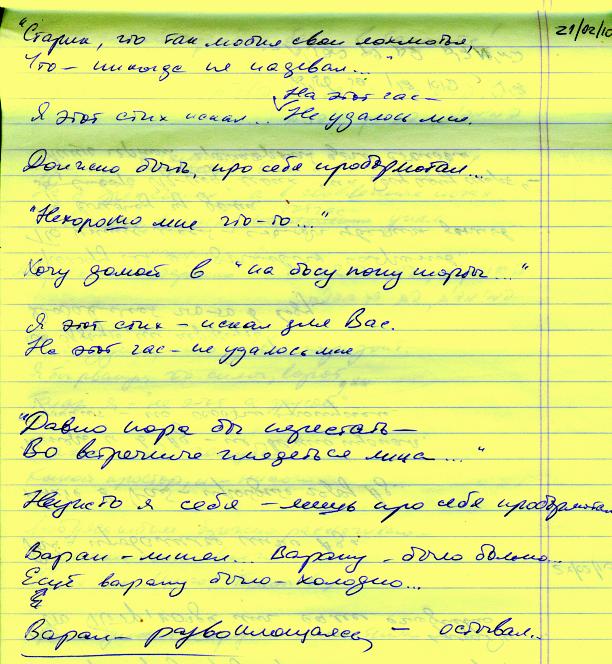 21/02/10
"Старик, что так любил свои лохмотья,
Что – никогда не надевал..."
На этот час –
Я этот стих искал... Не удалось мне.
Должно быть, про себя пробормотал...
"Нехорошо мне что-то..."
Хочу домой в "на босу попу шорты..."
Я этот стих – искал для Вас.
На этот час – не удалось мне
"Давно пора бы перестать –
Во встречные глядеться лица..."
Неужто я себя – лишь про себя пробормотал
Варан – линял... Варану – было больно...
Ещё варану было – холодно...
Варан – развоплощаясь, – остывал..